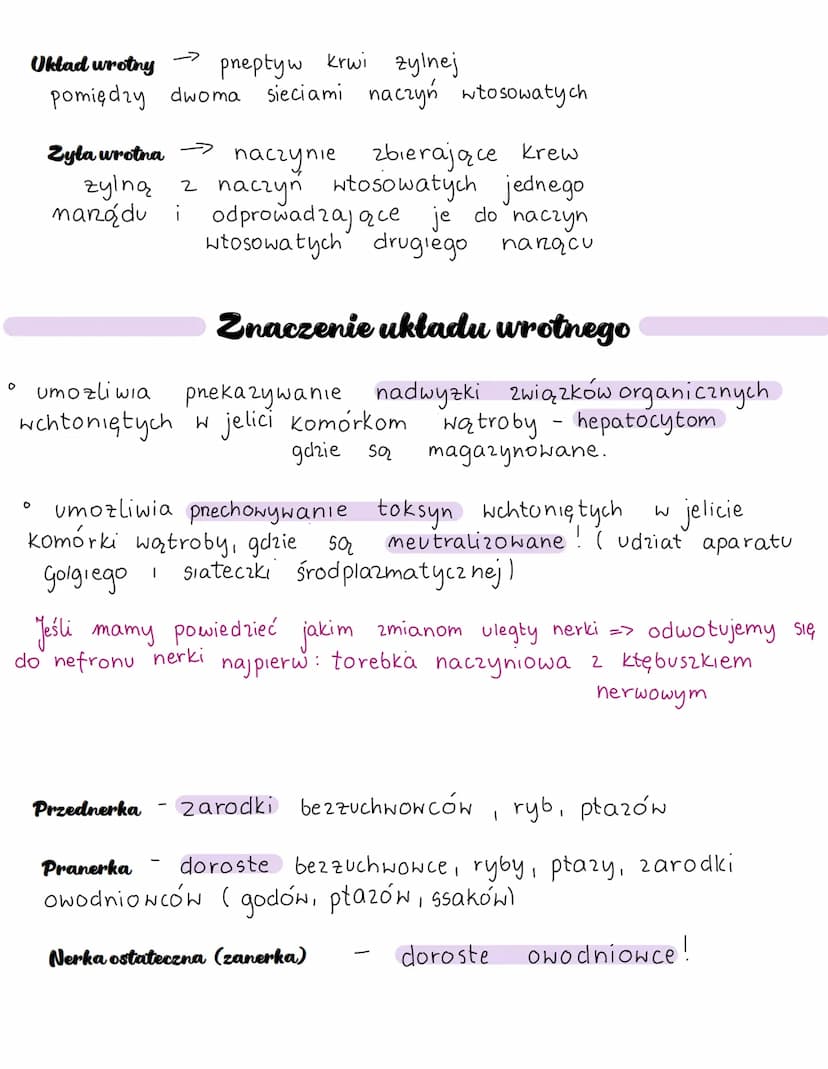 Układ wrotny → przepływ krwi żylnej
pomiędzy dwoma sieciami naczyń włosowatych
Żyła wrotna → naczynie zbierające krew
żylną z naczyń włosowatych jednego
narządu i odprowadzające je do naczyn
włosowatych drugiego narządu
Znaczenie układu wrotnego
° umożliwia przekazywanie nadwyżki związków organicznych
wchłoniętych w jelici komórkom wątroby - hepatocytom
gdzie są magazynowane.
° umożliwia przechowywanie toksyn wchłoniętych w jelicie
komórki wątroby, gdzie są neutralizowane! ( udział aparatu
Golgiego i siateczki śródplazmatycznej)
Jeśli mamy powiedzieć jakim zmianom uległy nerki => odwołujemy się
do nefronu nerki najpierw: torebka naczyniowa z kłębuszkiem
nerwowym
Przednerka - zarodki bezżuchwowców, ryb, płazów
Pranerka - dorosłe bezżuchwowce, ryby, płazy, zarodki
owodniowców ( godów, ptazów, ssaków)
Nerka ostateczna (zanerka) - dorosłe owodniowce!